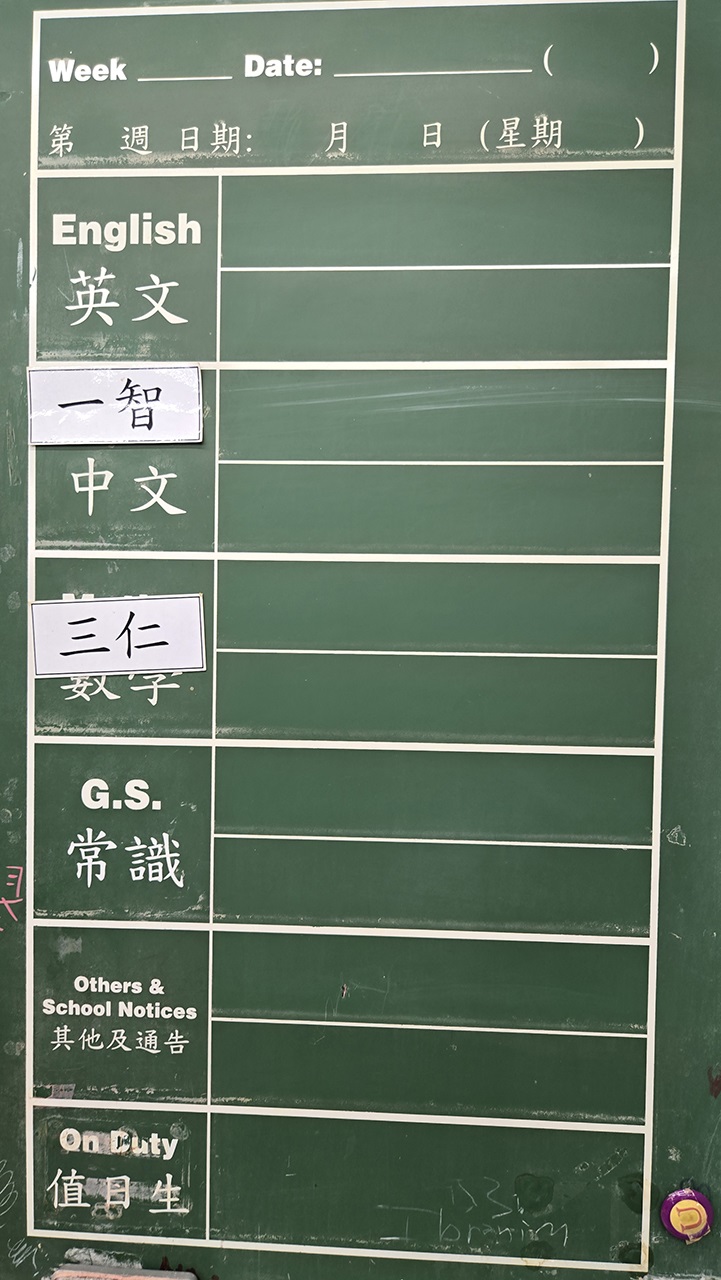 Week ______ Date: ______________ (      )
第 週 日期: 月 日 (星期 )
English
英文
一智
中文
三仁
數學
G.S.
常識
Others &
School Notices
其他及通告
On Duty
值日生
U